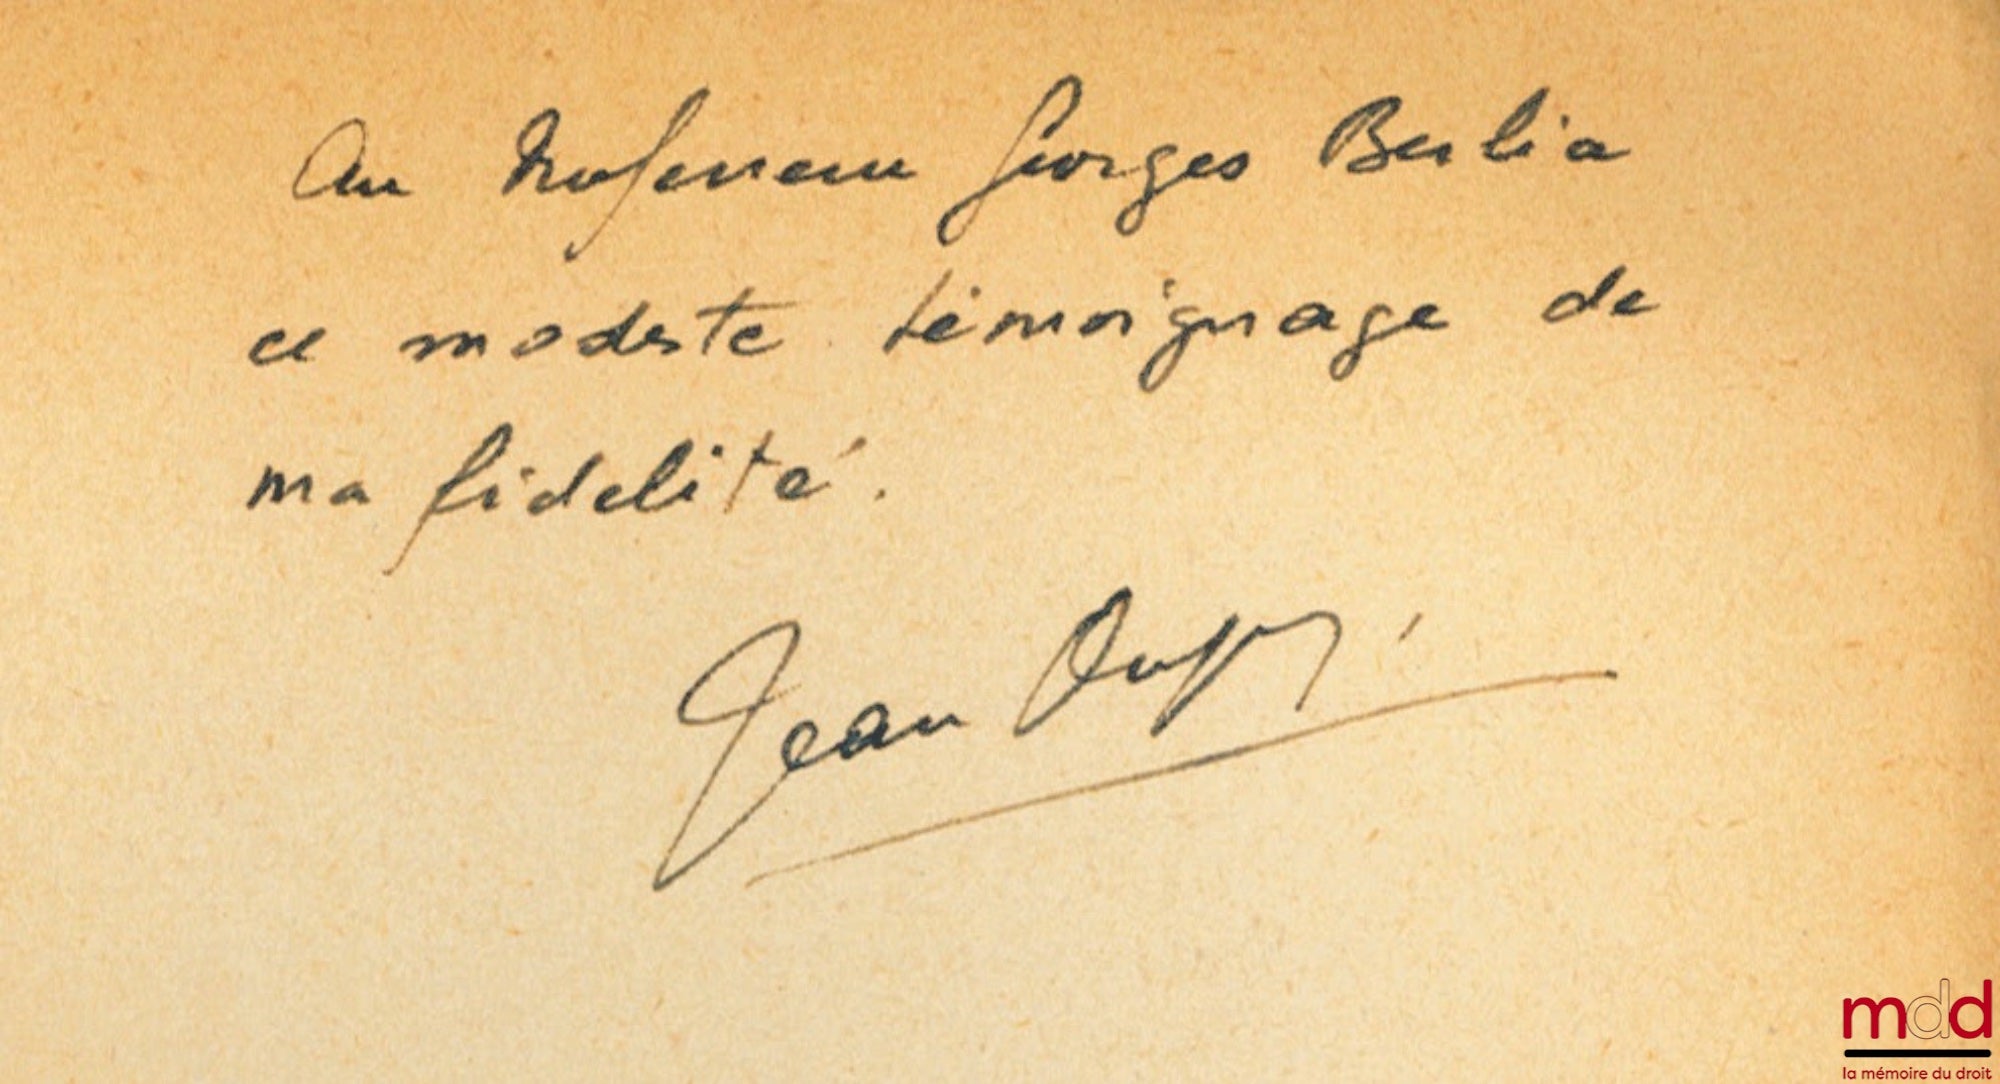 Au Professeur Georges Berlia
ce modeste témoignage de
ma fidélité.
Jean
mdd
la mémoire du droit